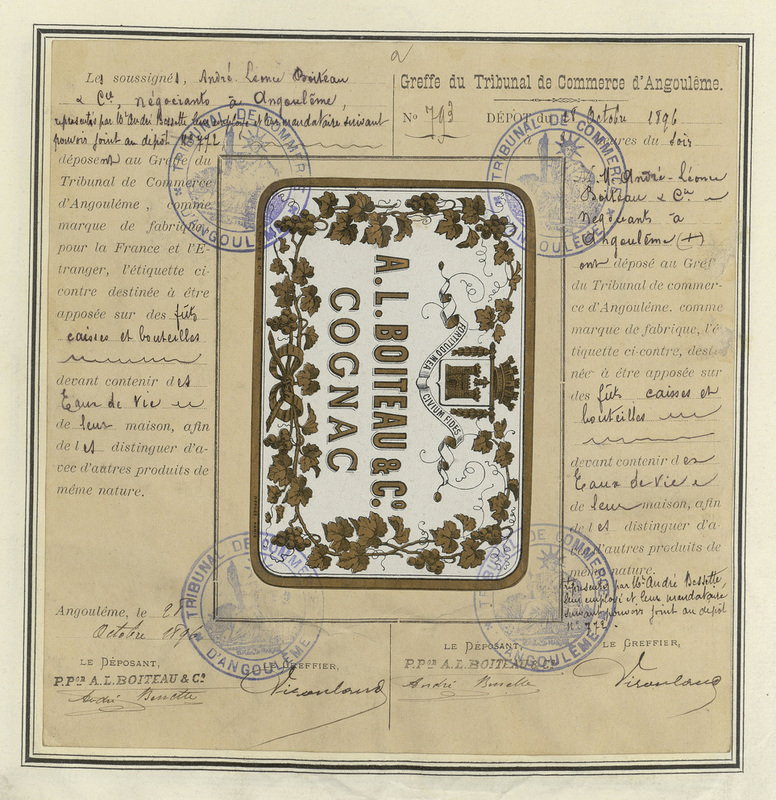 a
Les soussignés, André-Léonce Boiteau
& Cie, négociants à Angoulême,
représentés par Mr André Bessette leur employé et leur mandataire suivant
pouvoir joint au dépôt No 772,
déposent au Greffe du
Tribunal de Commerce
d'Angoulême, comme
marque de fabrique
pour la France et l'É-
tranger, l'étiquette ci-
contre destinée à être
apposée sur des fûts
caisses et bouteilles
devant contenir des
Eaux de Vie
de leur maison, afin
de les distinguer d'a-
vec d'autres produits de
même nature.
Angoulême, le 28
Octobre 1896
LE DÉPOSANT,
P.Pon A.L. BOITEAU & Co
André Bessette
LE GREFFIER,
A.L. BOITEAU & Co.
COGNAC
FORTITUDO MEA
CIVIUM FIDES
Greffe du Tribunal de Commerce d'Angoulême.
No 793 DÉPÔT du 28 Octobre 1896
à heures du soir
M. André-Léonce
Boiteau & Cie
Négociants à
Angoulême (+)
ont déposé au Greffe
du Tribunal de commer-
ce d'Angoulême. comme
marque de fabrique, l'é-
tiquette ci-contre, desti-
née à être apposée sur
des fûts caisses et
bouteilles
devant contenir des
Eaux de Vie
de leur maison, afin
de les distinguer d'a-
vec d'autres produits de
même nature.
représentés par Mr André Bessette
leur employé et leur mandataire
suivant pouvoir joint au dépôt
No 772.
LE DÉPOSANT,
P.Pon A.L. BOITEAU & Co
André Bessette
LE GREFFIER,
TRIBUNAL DE COMMERCE
D'ANGOULÊME
TRIBUNAL DE COMMERCE
D'ANGOULÊME
TRIBUNAL DE COMMERCE
D'ANGOULÊME
TRIBUNAL DE COMMERCE
D'ANGOULÊME